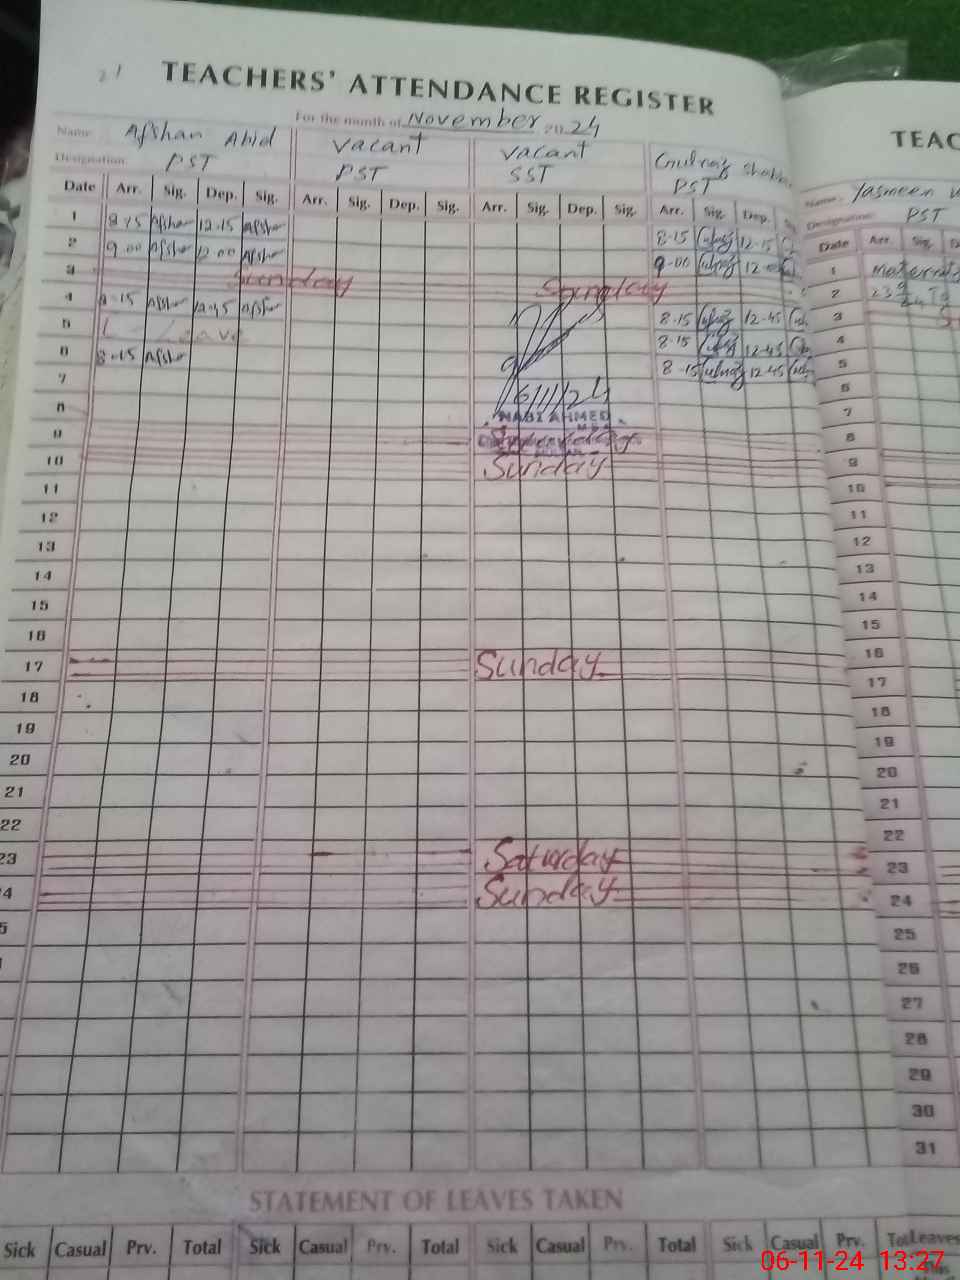 21
TEACHERS' ATTENDANCE REGISTER
TEAC
For the month of November 2024
Name: Afshan Abid
Vacant
Vacant
Name: Yasmeen
Designation: PST
PST
SST
PST
Designation: PST
Date Arr. Sig. Dep. Sig. Arr. Sig. Dep. Sig. Arr. Sig. Dep. Sig. Arr. Sig. Dep. S
Date Arr. Sig. D
1 8-15 Afshan 12-15 Afshan 8-15 12-15
2 9.00 Afshan 12 00 Afshan 9-00 12-00
3 Sunday Sunday
4 8-15 Afshan 12-45 Afshan 8-15 12-45
5 L - Leave 8-15 12-45
6 8-15 Afshan 8-15 12-45
7
6/11/24
8
NABI AHMED
9
10 Sunday
11
12
13
14
15
16
17 Sunday
18
19
20
21
22
23 Saturday
4 Sunday
5
1
2
3
4
5
6
7
8
9
10
11
12
13
14
15
16
17
18
19
20
21
22
23
24
25
26
27
28
29
30
31
STATEMENT OF LEAVES TAKEN
Sick Casual Prv. Total Sick Casual Prv. Total Sick Casual Prv. Total Sick Casual Prv. Leaves
06-11-24 13:27